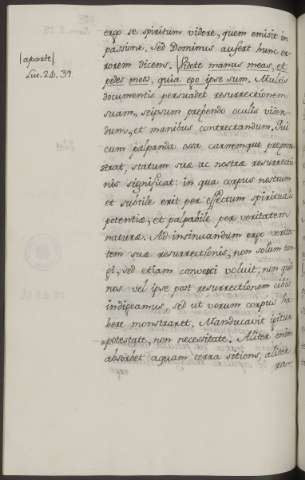 ergo se spiritum videre, quem emisit in
passione. Sed Dominus aufert hunc er-
rorem dicens. Videte manus meas, et
pedes meos, quia ego ipse sum. Multis
documentis persuadet resurrectionem
suam, seipsum prebendo oculis viden-
dum, et manibus contrectandum. Qui
cum palpanda ossa carnemque
statum suæ ac nostræ resurrectio
nis significat: in qua corpus nostrum
et subtile erit per effectum spiritualis
potentiæ, et palpabile per veritatem
naturæ. Ad insinuandum ergo verita-
tem suæ resurrectionis, non solum tan
gi, sed etiam convesci voluit, non quo
nos vel ipse post resurrectionem cibis
indigeamus, sed ut verum corpus ha
bere monstraret. Manducavit igitur
potestate, non necessitate. Aliter enim
absorbet aquam terra sitiens, aliter
[aparte]
Luc. 24. 39.